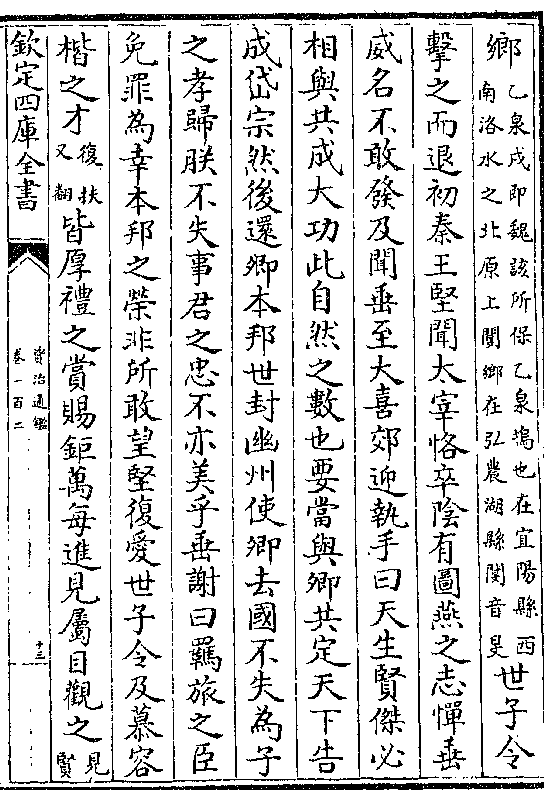 鄉乙泉戍即魏該所保乙泉塢也在宜陽縣西
南洛水之北原上閿鄉在弘農湖縣閿音旻世子令
擊之而退初秦王堅聞太宰恪卒陰有圖燕之志憚垂
威名不敢發及聞垂至大喜郊迎執手曰天生賢傑必
相與共成大功此自然之數也要當與卿共定天下告
成岱宗然後還卿本邦世封幽州使卿去國不失為子
之孝歸朕不失事君之忠不亦美乎垂謝曰羇旅之臣
免罪為幸本邦之榮非所敢望堅復愛世子令及慕容
楷之才復扶又翻皆厚禮之賞賜鉅萬每進見屬目觀之見賢
欽定四庫全書
資治通鑑
卷一百二
十三